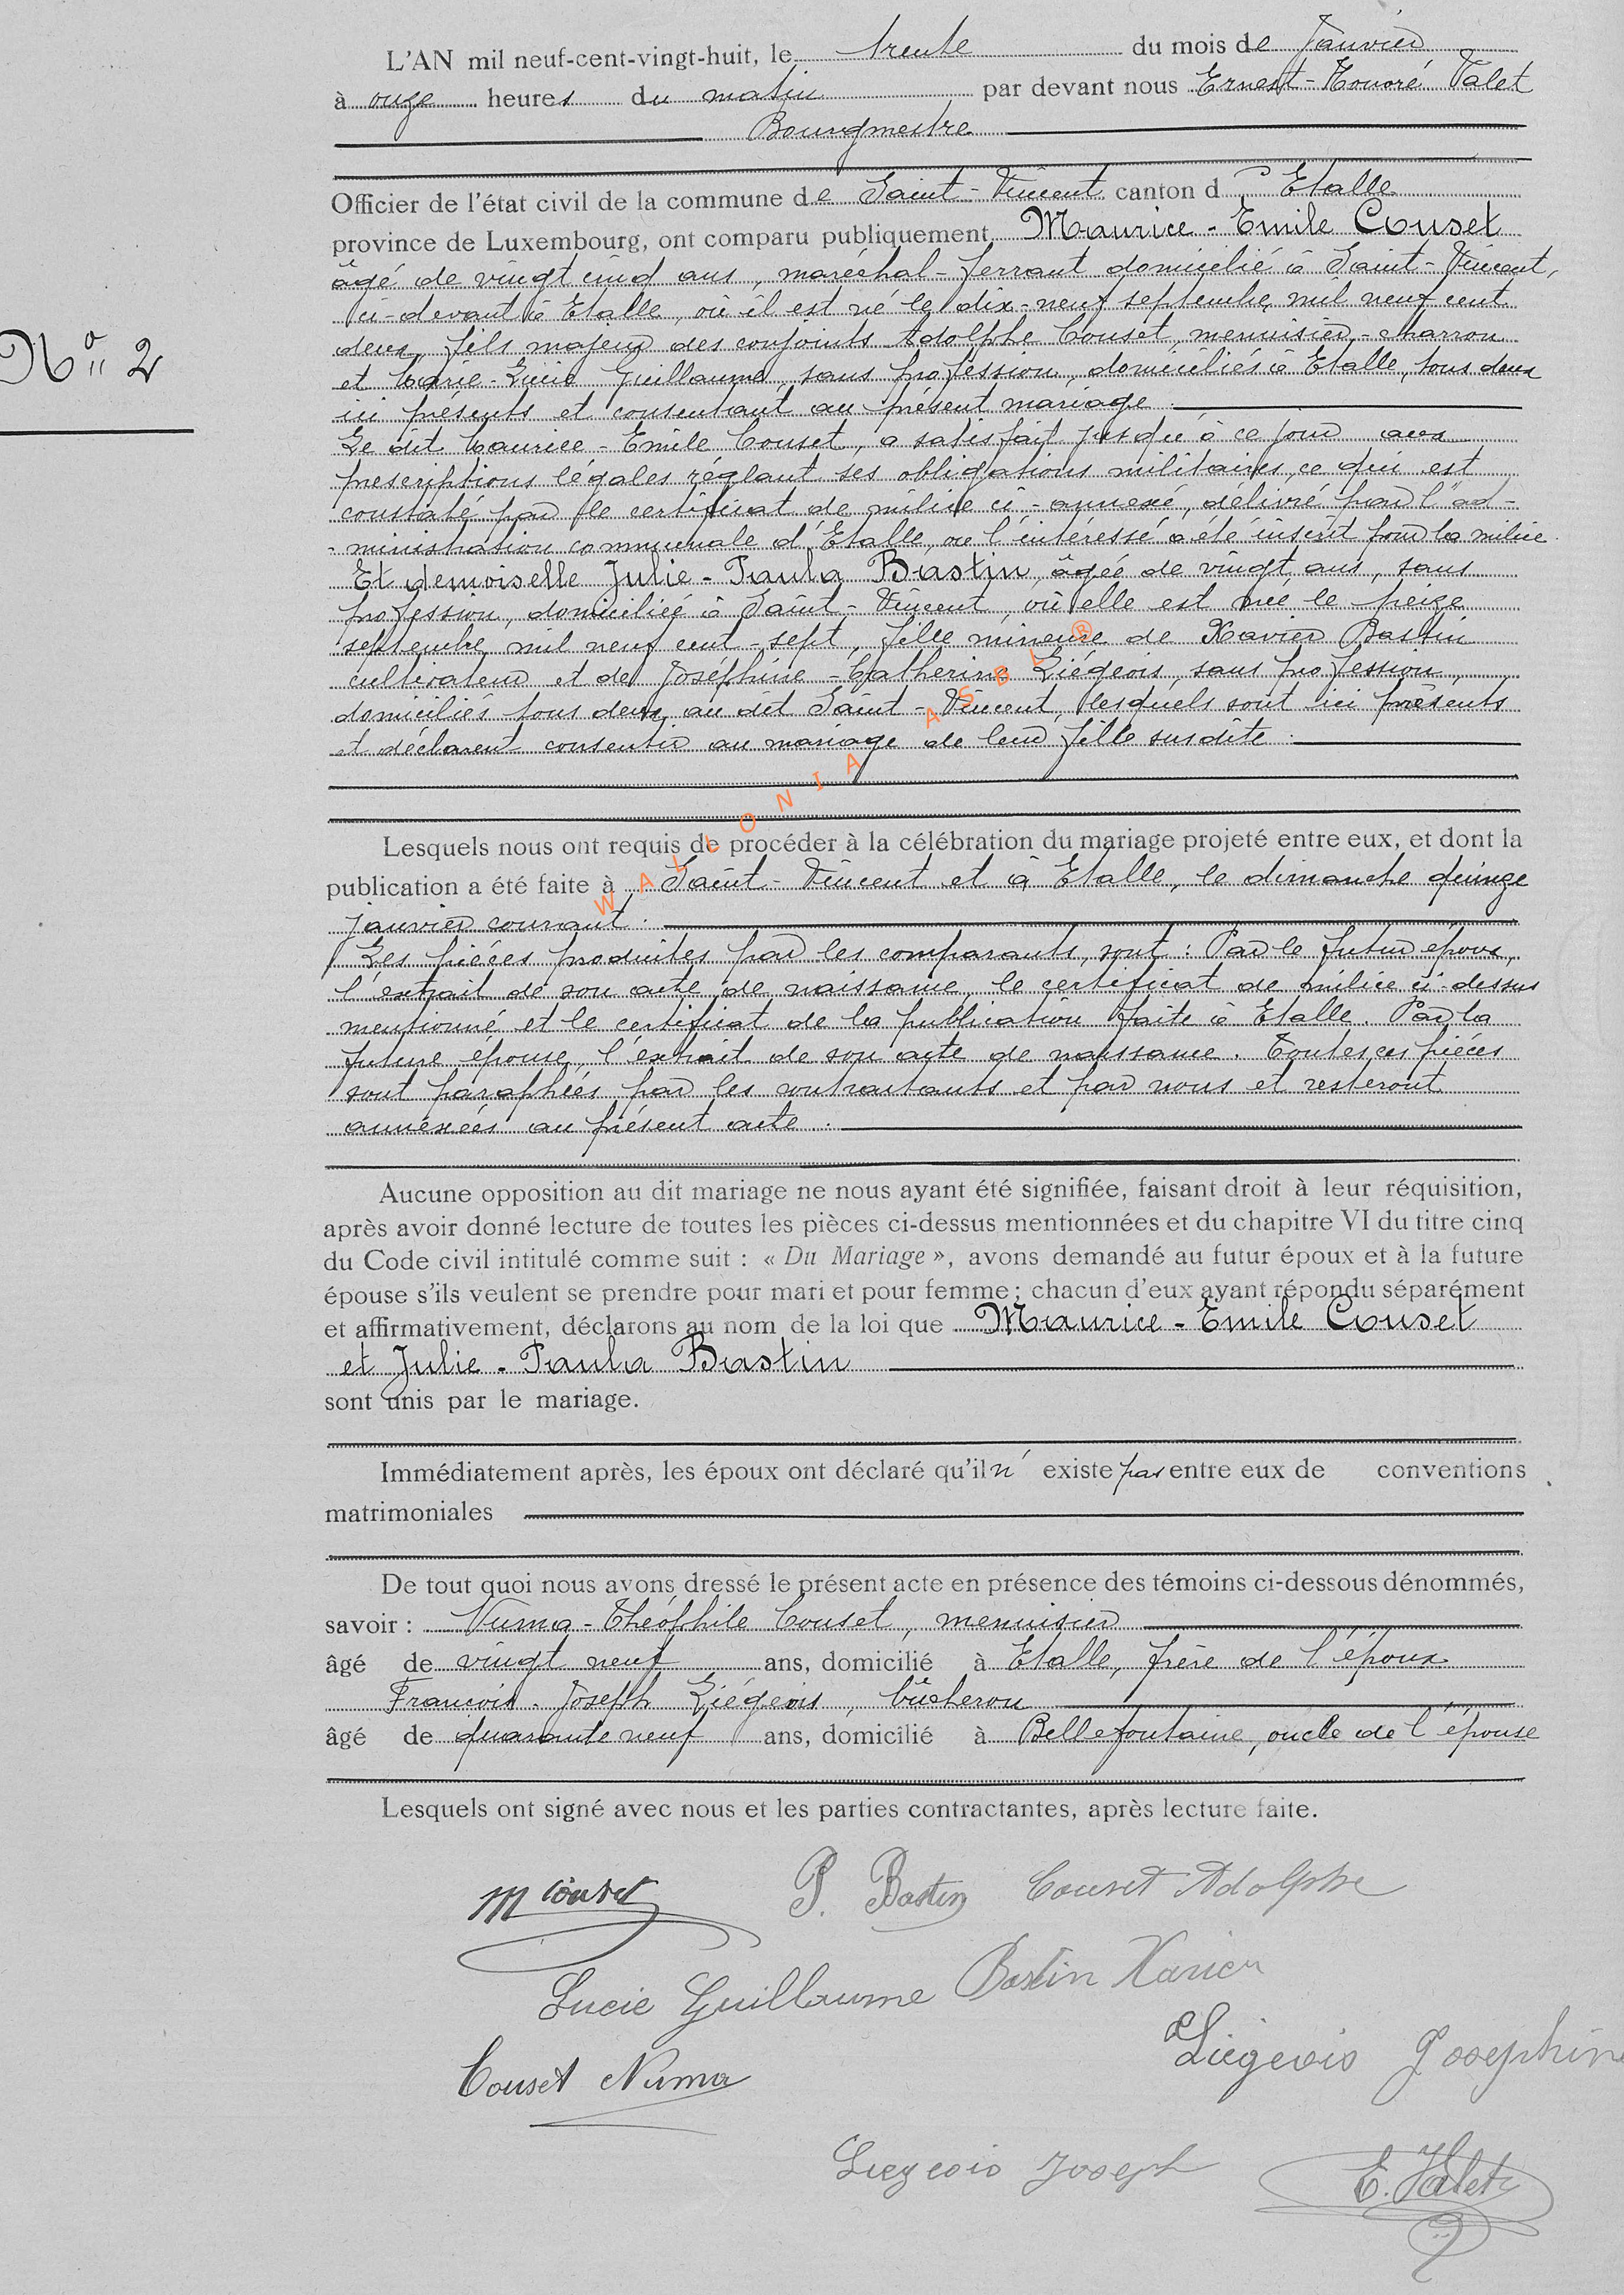 L'AN mil neuf-cent-vingt-huit, le trente du mois de Janvier
à onze heures du matin par devant nous Ernest-Honoré Valet
Bourgmestre
Officier de l'état civil de la commune de Saint-Vincent canton d'Etalle
province de Luxembourg, ont comparu publiquement Maurice-Emile Couset
âgé de vingt cinq ans, maréchal-ferrant domicilié à Saint-Vincent,
ci-devant à Etalle, où il est né le dix-neuf septembre mil neuf cent
deux, fils majeur des conjoints Adolphe Couset, menuisier-charron
et Marie-Lucie Guillaume, sans profession, domiciliés à Etalle, tous deux
ici présents et consentant au présent mariage.
Le dit Maurice-Emile Couset, a satisfait jusqu'à ce jour aux
prescriptions légales réglant ses obligations militaires, ce qui est
constaté par le certificat de milice ci-annexé, délivré par l'ad-
-ministration communale d'Etalle, où l'intéressé a été inscrit pour la milice.
Et demoiselle Julie-Paula Bastin, âgée de vingt ans, sans
profession, domiciliée à Saint-Vincent, où elle est née le seize
septembre mil neuf cent-sept, fille mineure de Xavier Bastin
cultivateur et de Joséphine-Catherine Liégeois, sans profession,
domiciliés tous deux au dit Saint-Vincent, lesquels sont ici présents
et déclarent consentir au mariage de leur fille susdite.
WALLONIA ASBL ®
Lesquels nous ont requis de procéder à la célébration du mariage projeté entre eux, et dont la
publication a été faite à Saint-Vincent et à Etalle, le dimanche quinze
janvier courant.
Les pièces produites par les comparants, sont : Par le futur époux,
l'extrait de son acte de naissance, le certificat de milice ci-dessus
mentionné et le certificat de la publication faite à Etalle. Par la
future épouse, l'extrait de son acte de naissance. Toutes ces pièces
sont paraphées par les contractants et par nous et resteront
annexées au présent acte.
Aucune opposition au dit mariage ne nous ayant été signifiée, faisant droit à leur réquisition,
après avoir donné lecture de toutes les pièces ci-dessus mentionnées et du chapitre VI du titre cinq
du Code civil intitulé comme suit : « Du Mariage », avons demandé au futur époux et à la future
épouse s'ils veulent se prendre pour mari et pour femme ; chacun d'eux ayant répondu séparément
et affirmativement, déclarons au nom de la loi que Maurice-Emile Couset
et Julie-Paula Bastin
sont unis par le mariage.
N° 2
Immédiatement après, les époux ont déclaré qu'il n'existe pas entre eux de conventions
matrimoniales
De tout quoi nous avons dressé le présent acte en présence des témoins ci-dessous dénommés,
savoir : Numa-Théophile Couset, menuisier
âgé de vingt neuf ans, domicilié à Etalle, frère de l'époux
François-Joseph Liégeois, bûcheron
âgé de quarante neuf ans, domicilié à Bellefontaine, oncle de l'épouse
Lesquels ont signé avec nous et les parties contractantes, après lecture faite.
M Couset P. Bastin Couset Adolphe
Lucie Guillaume Bastin Xavier
Couset Numa Liégeois Joséphine
Liegeois Joseph E. Valet